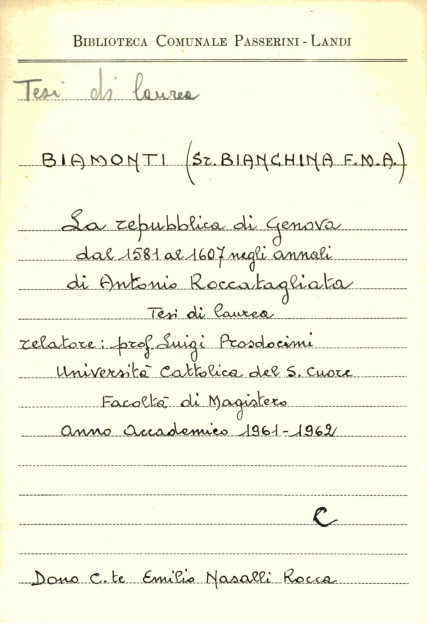 BIBLIOTECA COMUNALE PASSERINI - LANDI
Tesi di laurea
BIAMONTI (Sr. BIANCHINA F.M.A.)
La repubblica di Genova
dal 1581 al 1607 negli annali
di Antonio Roccatagliata
Tesi di laurea
relatore: prof. Luigi Prosdocimi
Università Cattolica del S. Cuore
Facoltà di Magistero
Anno Accademico 1961-1962
C
Dono C.te Emilio Nasalli Rocca